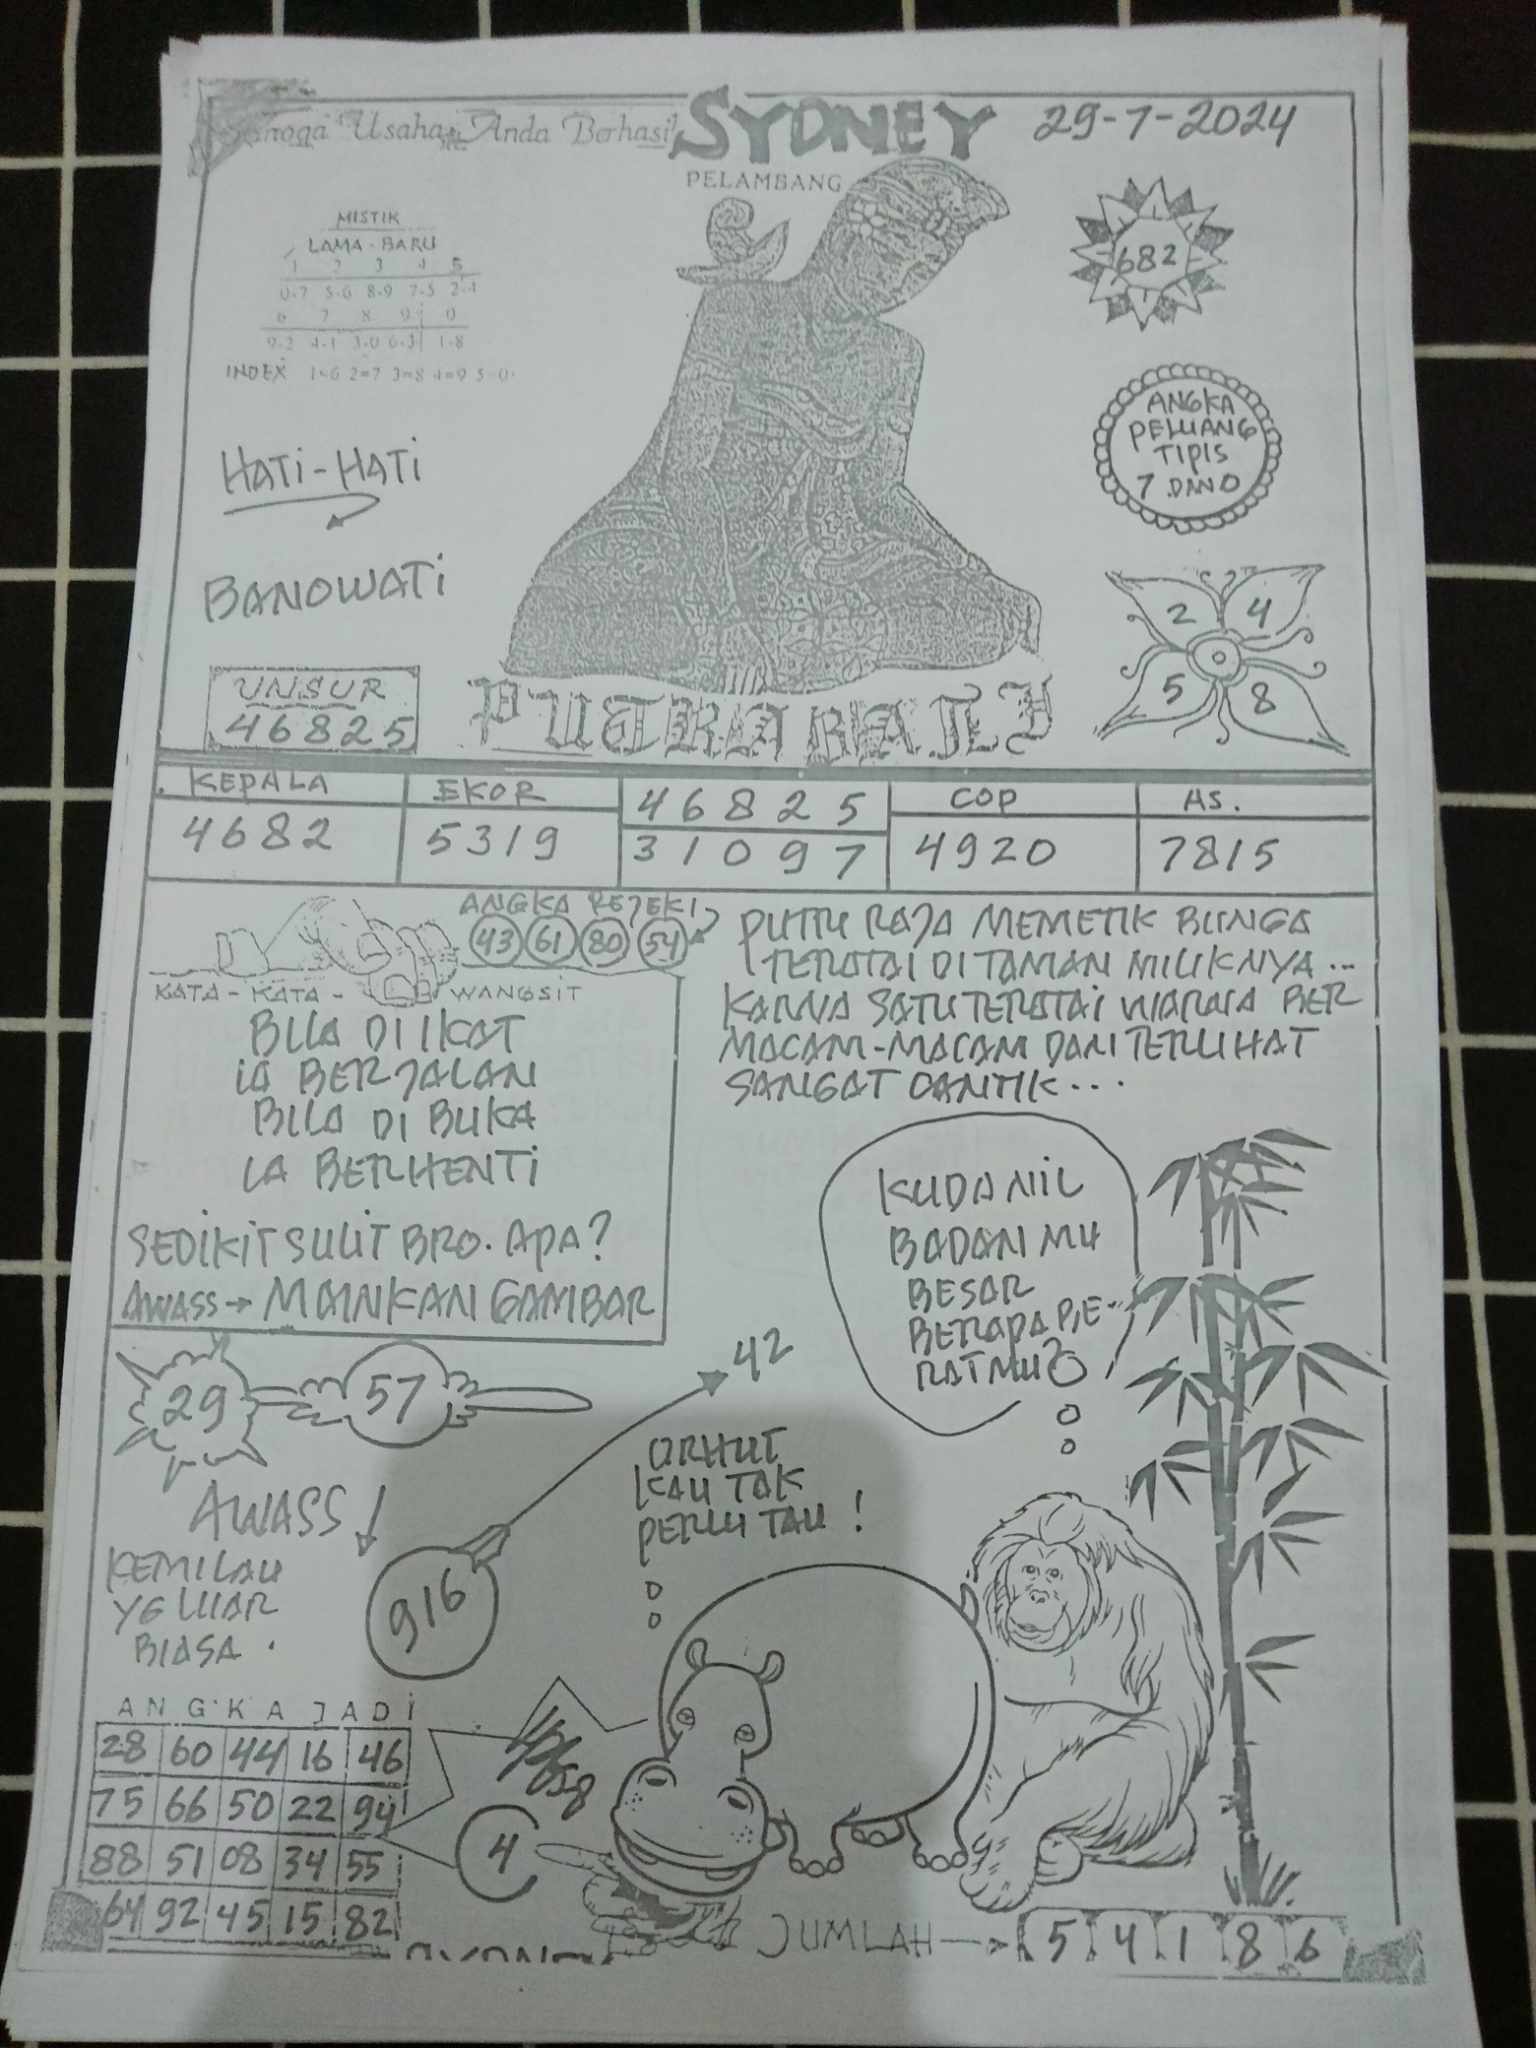 Usaha Anda Berhasil
SYDNEY
29-7-2024
PELAMBANG
MISTIK
LAMA - BARU
1 2 3 4 5
0-7 5-6 8-9 7-5 2-4
6 7 8 9 0
9-2 4-1 3-0 6-3 1-8
INDEX 1=6 2=7 3=8 4=9 5=0
682
ANGKA
PELUANG
TIPIS
7 DAN 0
HATI-HATI
BANOWATI
2 4
5 8
UNSUR
46825
PUTRA BALI
KEPALA
4682
EKOR
5319
4 6 8 2 5
3 1 0 9 7
COP
4920
AS.
7815
ANGKA REJEKI
43 61 80 54
KATA - KATA - WANGSIT
BILA DI IKAT
IA BERJALAN
BILA DI BUKA
IA BERHENTI
SEDIKIT SULIT BRO. APA?
AWASS → MAINKAN GAMBAR
PUTRI RAJA MEMETIK BUNGA
TERATAI DI TAMAN MILIKNYA...
KARNA SATU TERATAI WARNA BER
MACAM-MACAM DAN TERLIHAT
SANGAT CANTIK...
KUDA NIL
BADAN MU
BESAR
BERAPA BE-
RATMU?
29
57
42
AWASS
KEMILAU
YG LUAR
BIASA.
916
ORHUT
KAU TAK
PERLU TAU !
ANGKA JADI
28 60 44 16 46
75 66 50 22 94
88 51 08 34 55
64 92 45 15 82
4
JUMLAH → 5 4 1 8 6